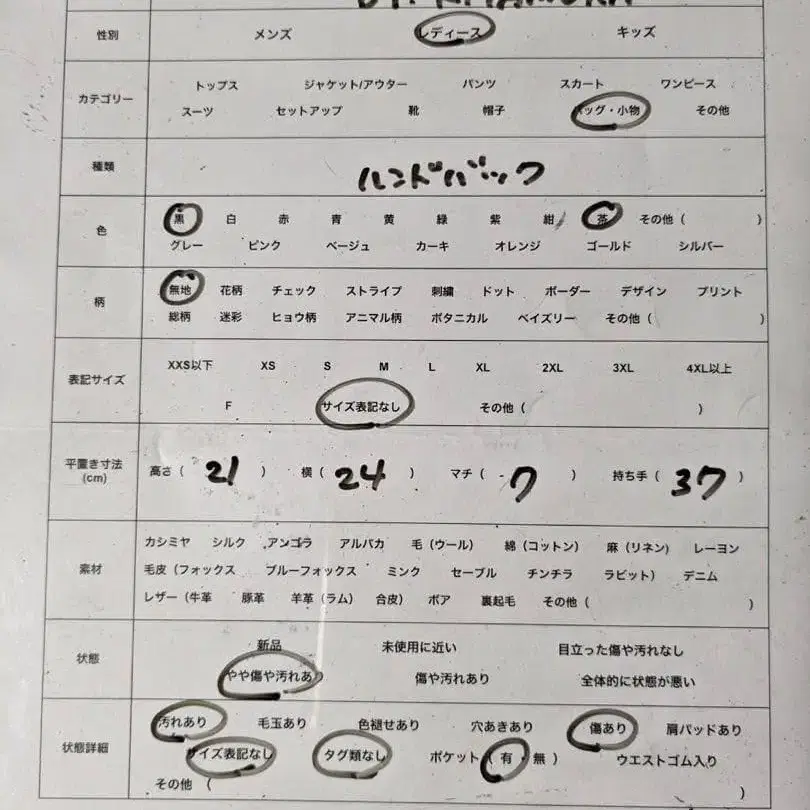 性別 メンズ レディース キッズ
カテゴリー トップス ジャケット/アウター パンツ スカート ワンピース
スーツ セットアップ 靴 帽子 バッグ・小物 その他
種類 ハンドバック
色 黒 白 赤 青 黄 緑 紫 紺 茶 その他 ( )
グレー ピンク ベージュ カーキ オレンジ ゴールド シルバー
柄 無地 花柄 チェック ストライプ 刺繍 ドット ボーダー デザイン プリント
総柄 迷彩 ヒョウ柄 アニマル柄 ボタニカル ペイズリー その他 ( )
表記サイズ XXS以下 XS S M L XL 2XL 3XL 4XL以上
F サイズ表記なし その他 ( )
平置き寸法 (cm) 高さ ( 21 ) 横 ( 24 ) マチ ( 7 ) 持ち手 ( 37 )
素材 カシミヤ シルク アンゴラ アルパカ 毛 (ウール) 綿 (コットン) 麻 (リネン) レーヨン
毛皮 (フォックス ブルーフォックス ミンク セーブル チンチラ ラビット) デニム
レザー (牛革 豚革 羊革 (ラム) 合皮) ボア 裏起毛 その他 ( )
状態 新品 未使用に近い 目立った傷や汚れなし
やや傷や汚れあり 傷や汚れあり 全体的に状態が悪い
状態詳細 汚れあり 毛玉あり 色褪せあり 穴あきあり 傷あり 肩パッドあり
サイズ表記なし タグ類なし ポケット ( 有・無 ) ウエストゴム入り
その他 ( )